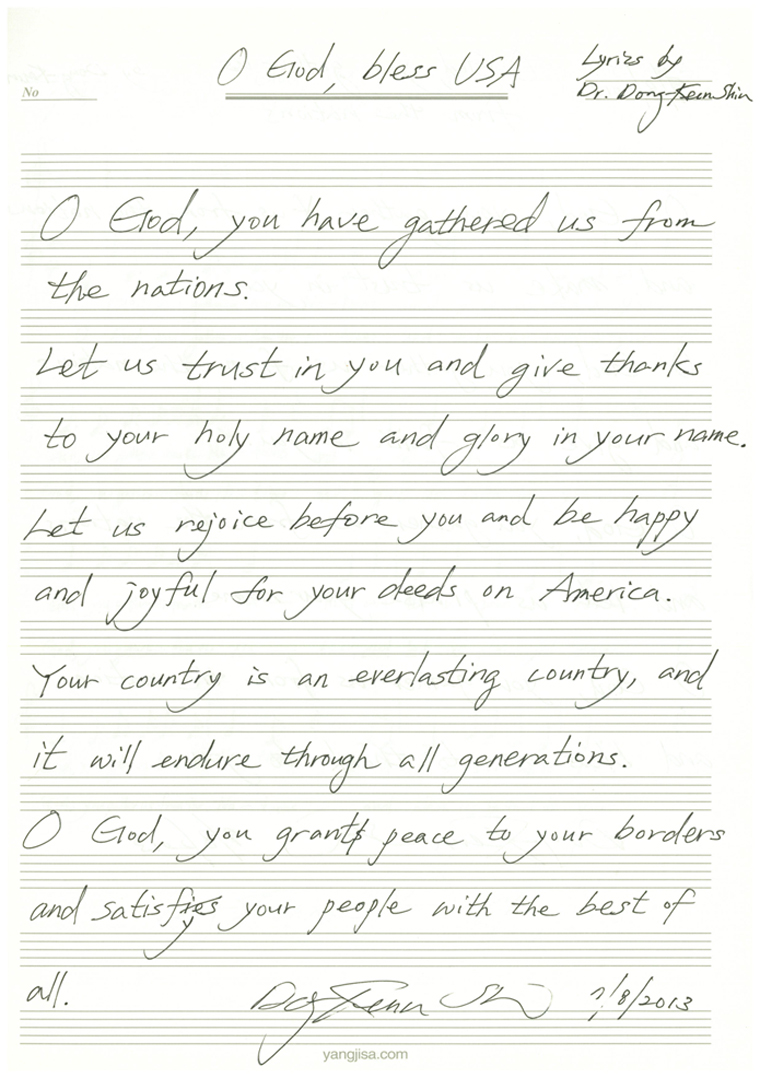 O God, bless USA
Lyrics by
Dr. Dong-Keun Shin
No
O God, you have gathered us from
the nations.
Let us trust in you and give thanks
to your holy name and glory in your name.
Let us rejoice before you and be happy
and joyful for your deeds on America.
Your country is an everlasting country, and
it will endure through all generations.
O God, you grant peace to your borders
and satisfy your people with the best of
all.
Dong Keun Shin 7/8/2013
yangjisa.com